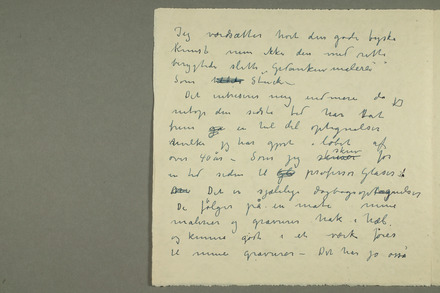 Jeg værdsætter højt den gode tyske
Kunst men ikke den med rette
berygtede slette "Gedankenmalerei"
Som Stucks
Det interesserer mig endmere da jeg
netop den sidste tid har tat
frem en hel del optegnelser
hvilke jeg har gjort i løbet af
over 40 år – Som jeg skrev for
en tid siden til professor Glaser:
Det er sjælelige dagbogsoptegnelser
De følger på en måte mine
malerier og gravurer hak i hæl
og kunne godt i et værk føies
til mine gravurer – Det har jo også